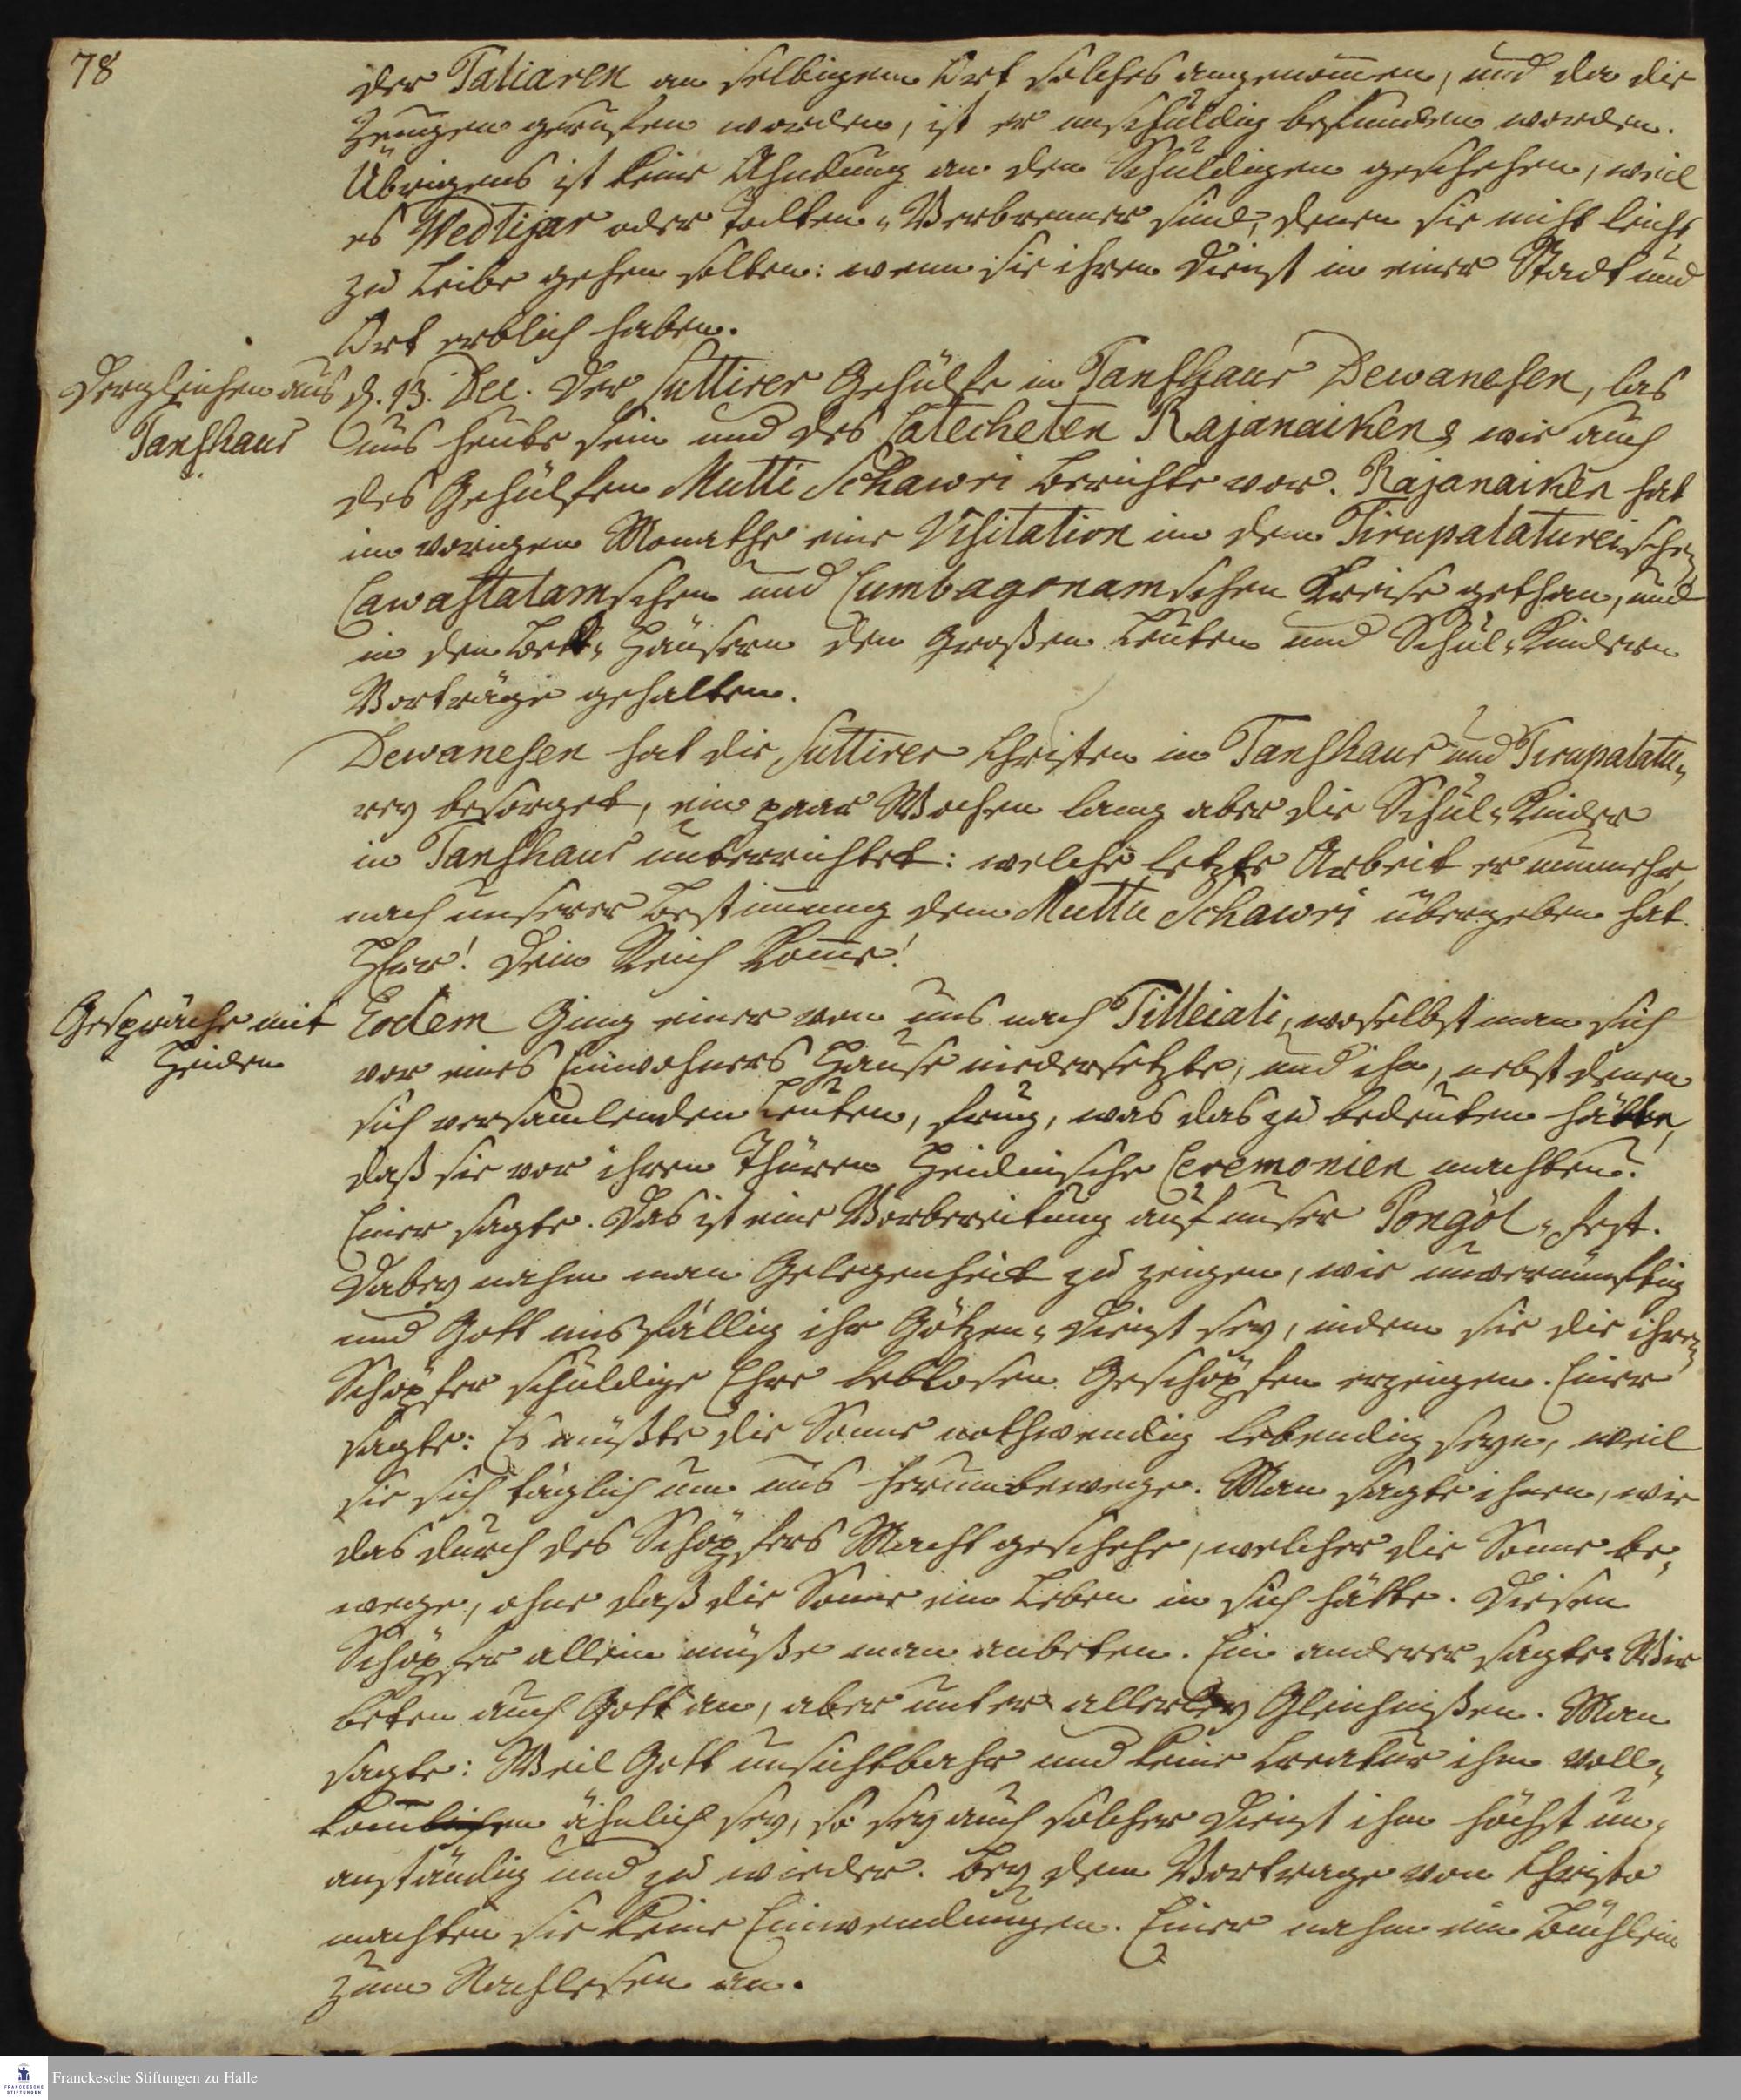 78
der Taliaren an selbigem Ort solches angenommen, und da die
Zeugen gerufen worden, ist er unschuldig befunden worden.
Übrigens ist keine Ahndung an den Schuldigen geschehen, weil
es Wedtijar oder Todten-Verbrenner sind, denen sie nicht leicht
zu Leibe gehen sollen: wenn sie ihren Dienst in einer Stadt und
Ort erblich haben.
Dergleichen aus
Tanschaur
d. 13. Dec. Der Suttirer Gehülfe in Tanschaur Dewanesen, las
uns heute sein und des Catecheten Rajanaikens wie auch
des Gehülfen Muttu Schawri Berichte vor. Rajanaiken hat
im vorigen Monathe eine Visitation in dem Tirupalatureischen
Cawastalamschen und Cumbagonamschen Kreise gethan, und
in den Bet-Häusern den Großen Leuten und Schul-Kindern
Vorträge gehalten.
Dewanesen hat die Suttirer Christen in Tanschaur und Tirupalatu-
rey besorget, ein paar Wochen lang aber die Schul-Kinder
in Tanschaur unterrichtet: welche letzte Arbeit er nunmehr
nach unserer Bestimmung dem Muttu Schawri übergeben hat.
HErr! Dein Reich komme!
Gespräche mit
Heiden
Eodem Ging einer von uns nach Tilleiali, woselbst man sich
vor eines Einwohners Hause niedersetzte, und ihn, nebst denen
sich versamlenden Leuten, frug, was das zu bedeuten hätte,
daß sie vor ihren Thüren Heidnische Ceremonien machten?
Einer sagte. Das ist eine Vorbereitung auf unser Pongol-Fest.
Dabey nahm man Gelegenheit zu zeigen, wie unvernünftig
und Gott misfällig ihr Götzen-Dienst sey, indem sie die ihrem
Schöpfer schuldige Ehre leblosen Geschöpfen erzeigen. Einer
sagte: Es müßte die Sonne nothwendig lebendig seyn, weil
sie sich täglich um uns herumbewege. Man sagte ihnen, wie
das durch des Schöpfers Macht geschehe, welcher die Sonne be-
wege, ohne daß die Sonne ein Leben in sich hätte. Diesen
Schöpfer allein müße man anbeten. Ein anderer sagte: Wir
beten auch Gott an, aber unter allerley Gleichnißen. Man
sagte: Weil Gott unsichtbahr und keine Creatur ihm voll-
kommen ähnlich sey, so sey auch solcher Dienst ihm höchst un-
anständig und zu wieder. Bey dem Vortrage von Christo
machten sie keine Einwendungen. Einer nahm ein Büchlein
zum Nachlesen an.
Franckesche Stiftungen zu Halle
FRANCKESCHE
STIFTUNGEN